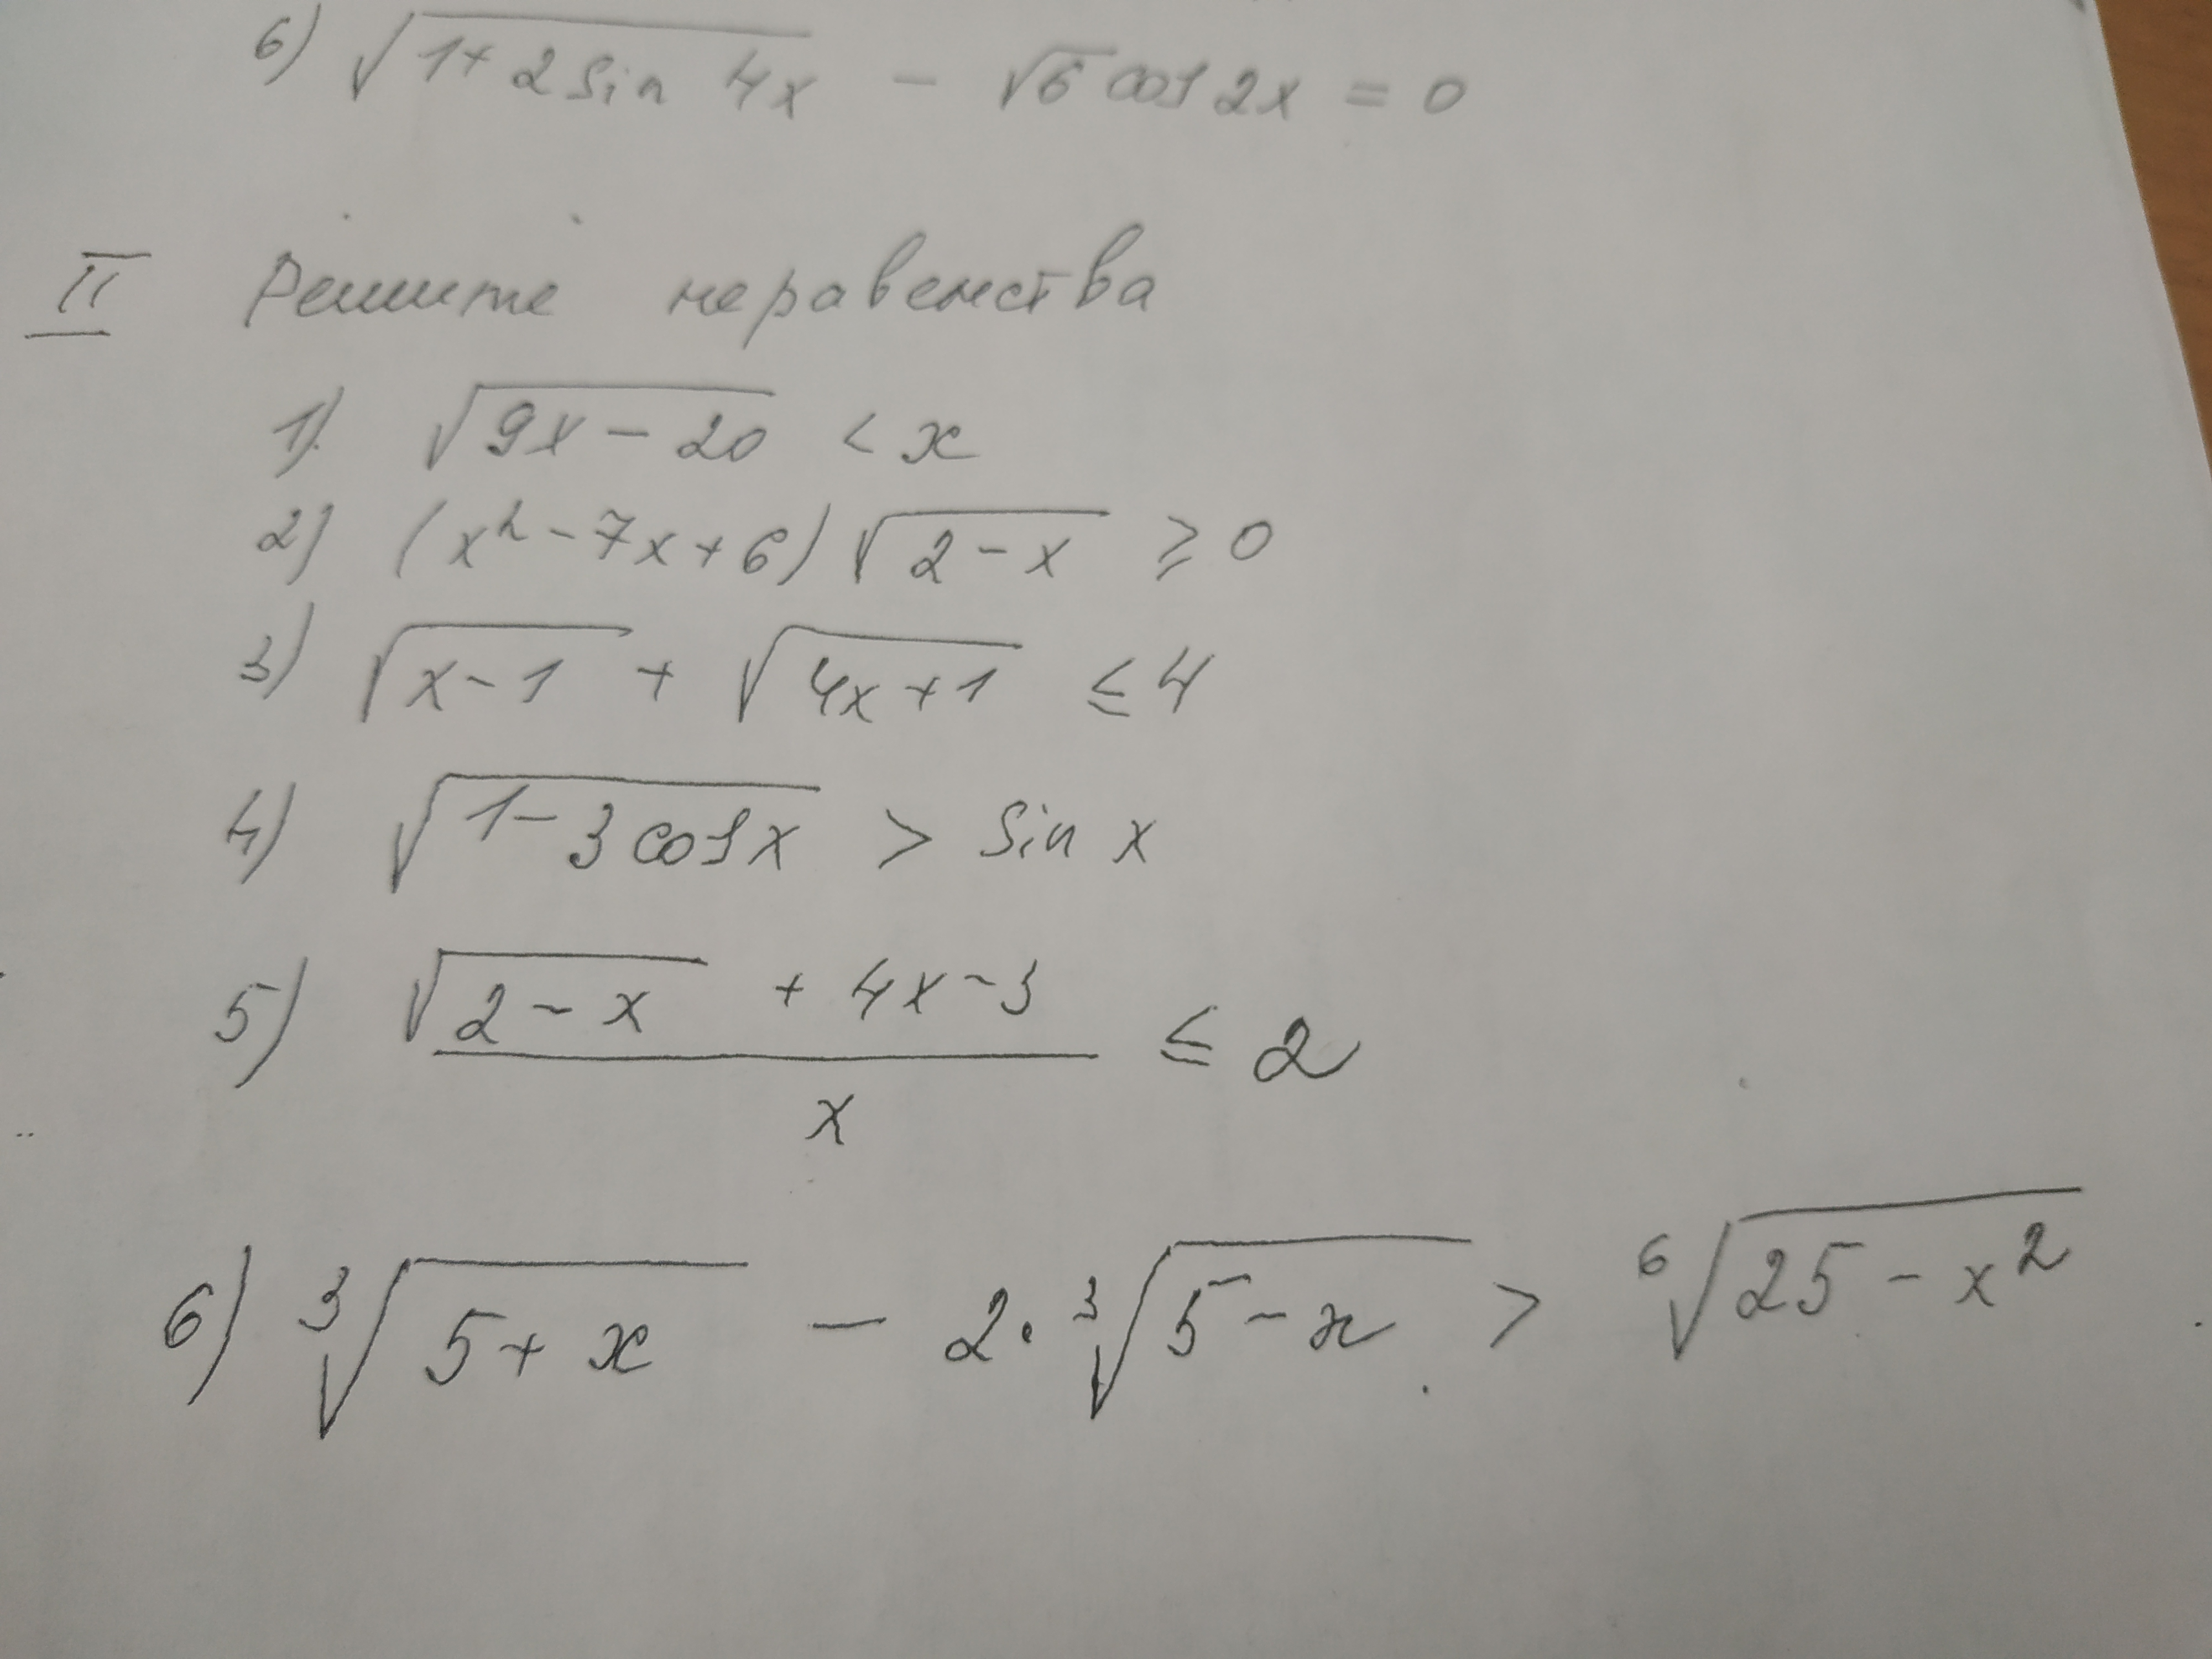 6) √(1+2sin 4x) - √6 cos 2x = 0
II Решите неравенства
1) √(9x-20) < x
2) (x²-7x+6)√(2-x) ≥ 0
3) √(x-1) + √(4x+1) ≤ 4
4) √(1-3cosx) > sin x
5) (√(2-x) + 4x-3)/x ≤ 2
6) ∛(5+x) - 2·∛(5-x) > ⁶√(25-x²)